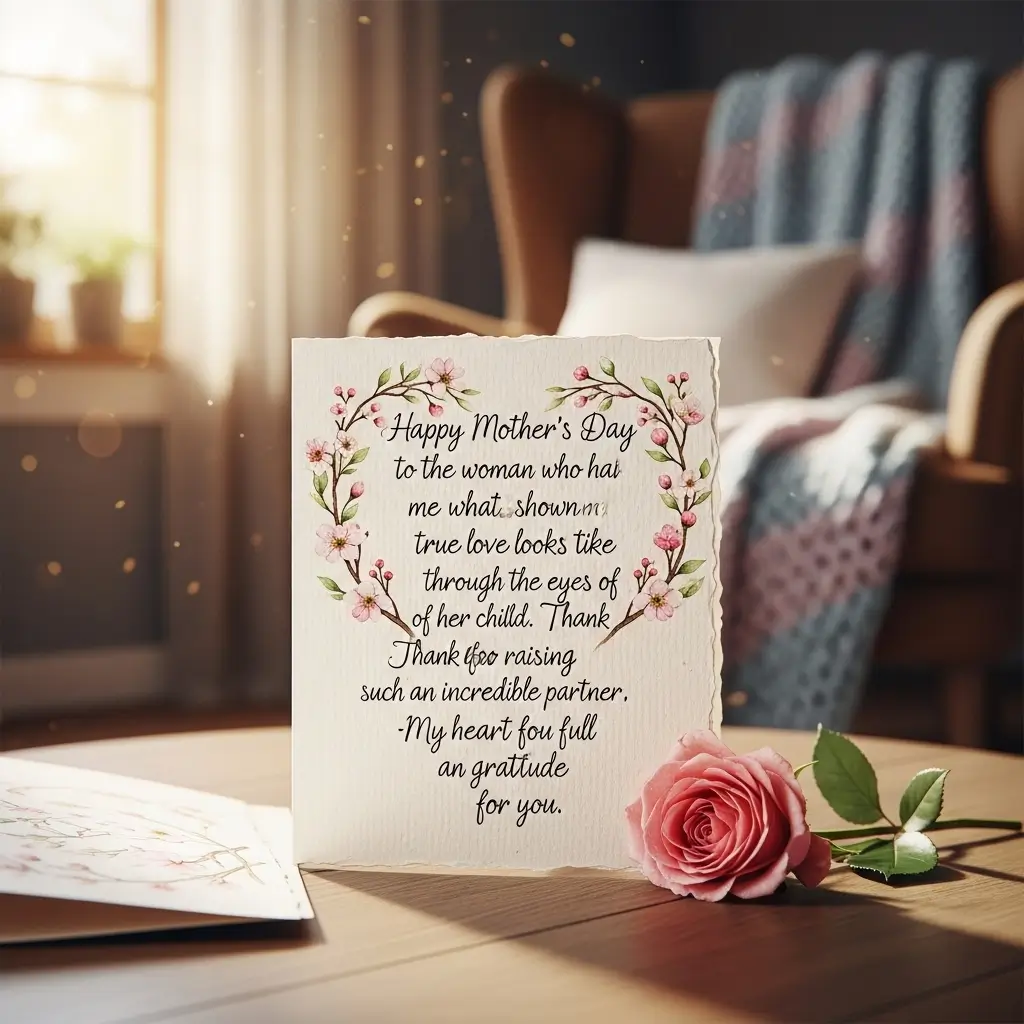 Happy Mother's Day
to the woman who hat
me what shown m
true love looks tike
through the eyes of
of her chilld. Thank
Thank raising
such an incredible partner,
-My heart fou full
an gratiude
for you.